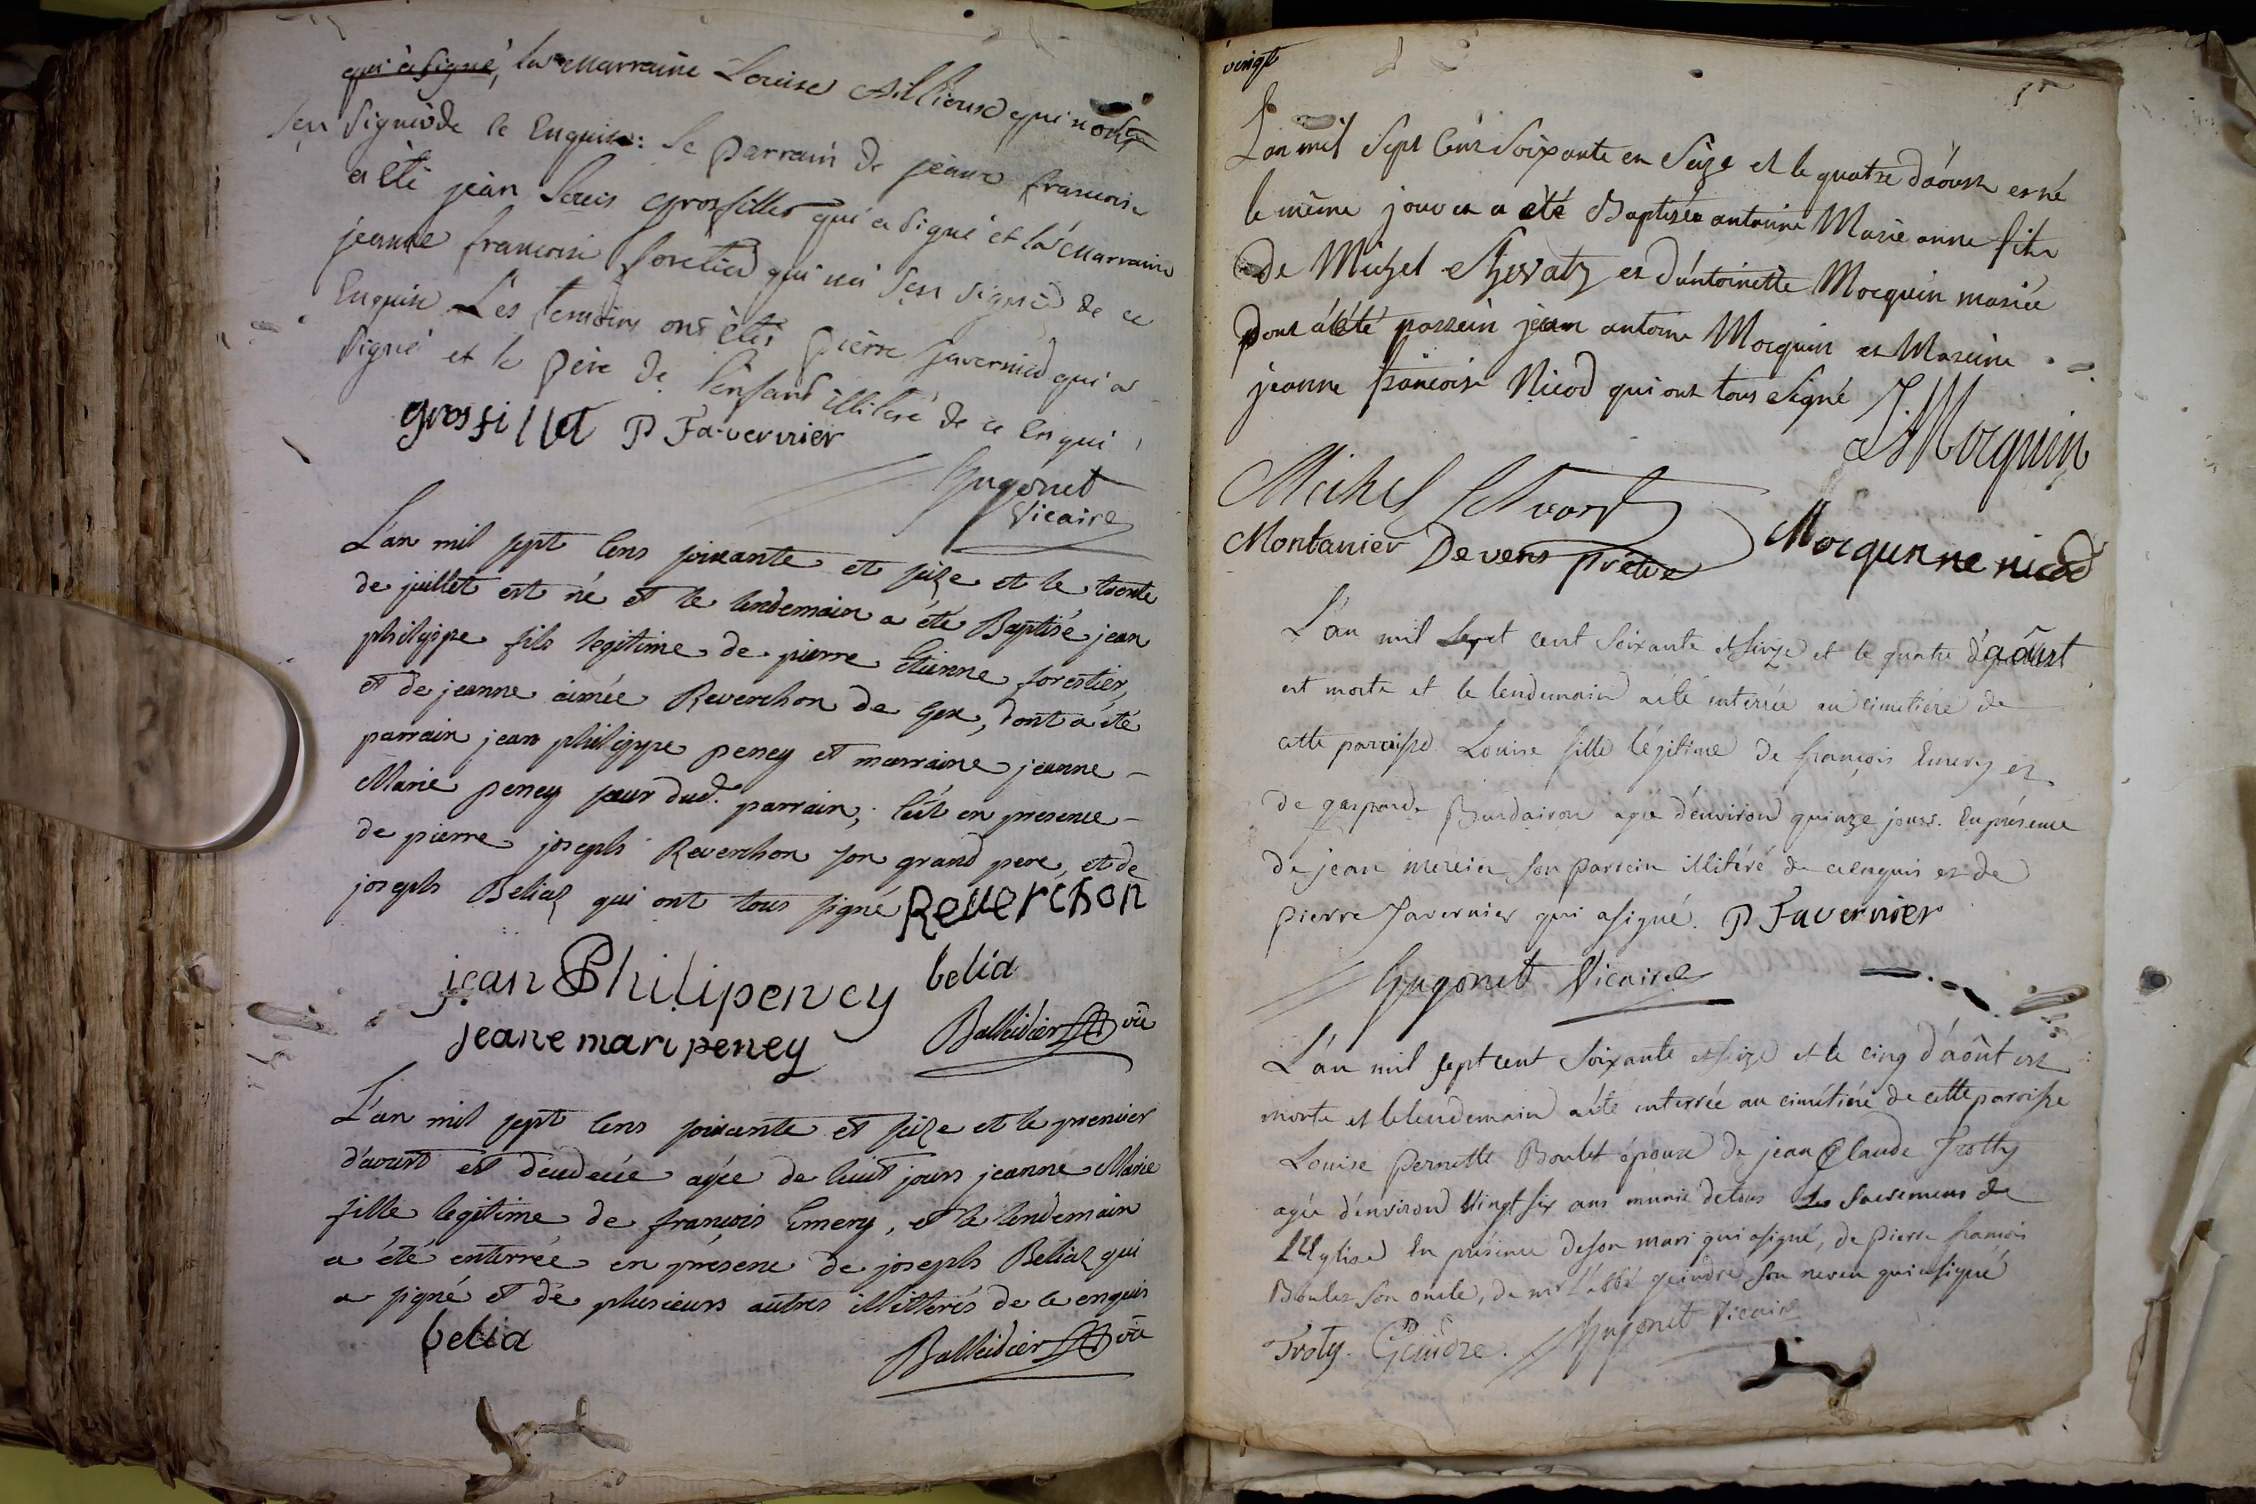 qui a signé, la marraine Louise qui
sçu signé de ce Enquise: Le parrain de jeanne francoise
a été jean Louis grosfillet qui a signé et la marraine
jeanne francoise forestier qui n'a sçu signé de ce
Enquise Les temoins ont étés pierre favernier qui a
signé et le père de l'enfant illiteré de ce enqui
grosfillet P Favernier
Hugonet
Vicaire
L'an mil sept cens soixante et seize et le trente
de juillet est né et le lendemain a été Baptisé jean
philippe fils legitime de pierre Etienne forestier,
et de jeanne aimée Reverchon de Gex, dont a été
parrain jean philippe peney et marraine jeanne
Marie peney sœur dud. parrain; c'est en presence
de pierre joseph Reverchon son grand pere, et de
joseph Beliaz qui ont tous signé Reverchon
jean Philipeney belia
jeane mari peney Balleidier vic
L'an mil sept cens soixante et seize et le premier
d'aoust est decedeé agée de huit jours jeanne Marie
fille legitime de françois Emery, et le lendemain
a été enterrée en présence de joseph Beliaz qui
a signé et de plusieurs autres illitterés de ce enquis
belia Balleidier vic
vingt
L'an mil sept Cens soixante en seize et le quatre d'aoust est né
le même jour et a été Baptisée antoine Marie anne fille
de Michel et d'antoinette Mocquin mariée
dont a été parrein jean antoine Mocquin et Mareine
jeanne francoise Nicod qui ont tous signé J.
a Mocquin
Michel
Montanier De vens prêtre Mocqun ne nicod
L'an mil sept cent soixante et seize et le quatre d'août
est morte et le lendemain a été enterrée au cimetiére de
cette paroisse Louise fille légitime de françois Emery et
de gasparde Burdairon agée d'environ quinze jours. En présence
de jean mercier son parrein illitéré de ce enquis et de
pierre favernier qui a signé. P Favernier
Hugonet Vicaire
L'an mil sept cent soixante et seize et le cinq d'août est
morte et le lendemain a été enterrée au cimétiére de cette paroisse
Louise Pernette Boulet épouse de jean Claude Trotty
agée d'environ vingt six ans munie de tous les sacremens de
l'Eglise En présence de son mari qui a signé, de pierre francois
Boulet son oncle, de mr l'abbé geindre son neveu qui a signé
Troty. Geindre. Hugonet Vicaire